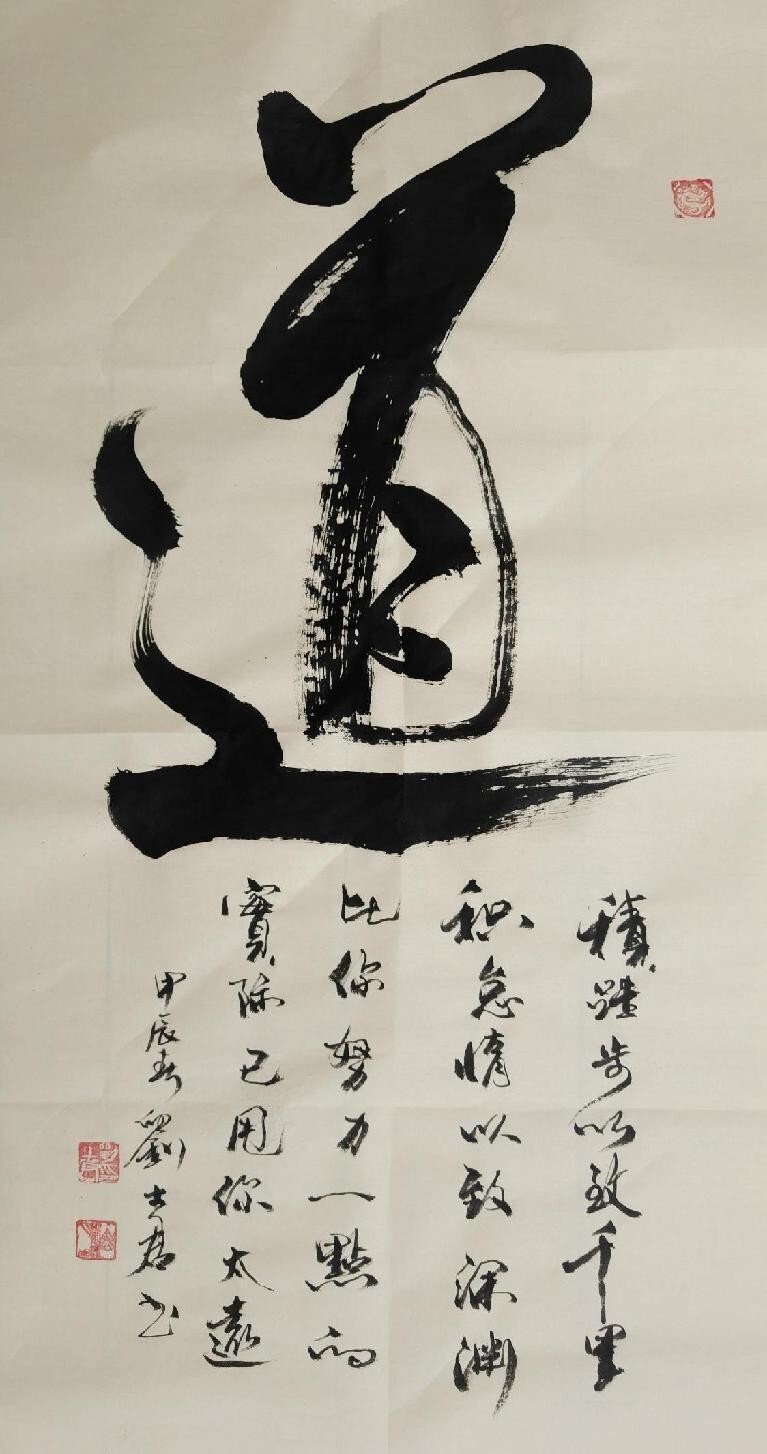 道
積跬步以致千里
积怠惰以致深渊
比你努力一點的
實际已甩你太遠
甲辰春劉士君书